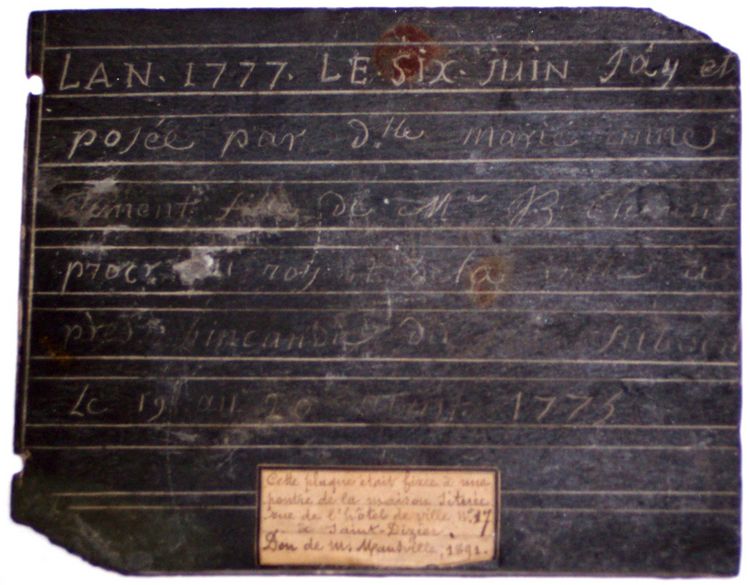 LAN. 1777. LE. SIX. JUIN Jáy et
posée par d.lle marie anne
Clément fille de Mr B. Clément
procr du roy et de la
près lincandie du
Le 19 au 20 1775
Cette plaque était fixée à une
poutre de la maison située
rue de l'hôtel de ville No 17
à Saint-Dizier.
Don de Mr Mauville, 1891.